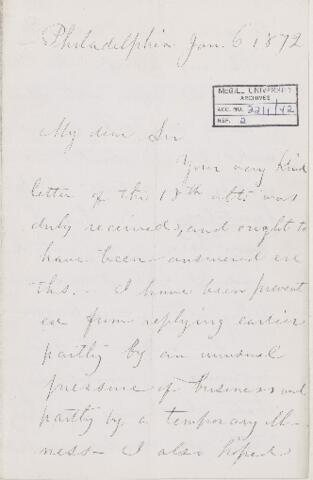 Philadelphia Jan. 6 1872
McGILL UNIVERSITY
ARCHIVES
ACC. NO. 2211/42
REF. 2
My dear Sir
Your very kind
letter of the 18th ulto was
duly received, and ought to
have been answered ere
this. - I have been prevent
ed from replying earlier
partly by an unusual
pressure of business and
partly by a temporary ill-
ness - I also hoped